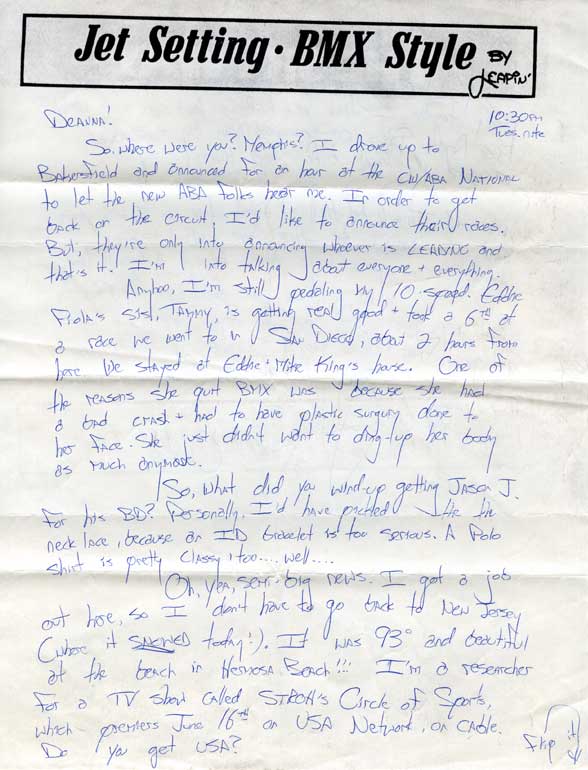 Jet Setting • BMX Style BY LEAPIN'
10:30PM
Tues. nite
DEANNA!
So, where were you? Memphis? I drove up to
Bakersfield and announced for an hour at the CW/ABA NATIONAL
to let the new ABA folks hear me. In order to get
back on the circuit, I'd like to announce their races.
But, they're only into announcing whoever is LEADING and
that's it. I'm into talking about everyone + everything.
Anyhoo, I'm still pedaling my 10-speed. Eddie
Fiola's sis, TAMMY, is getting real good + took a 6th at
a race we went to in SAN DIEGO, about 2 hours from
here. We stayed at Eddie + Mike King's house. One of
the reasons she quit BMX was because she had
a bad crash + had to have plastic surgery done to
her face. She just didn't want to ding-up her body
as much anymore.
So, what did you wind-up getting JASON J.
for his BD? Personally, I'd have picked the
necklace, because an ID bracelet is too serious. A Polo
shirt is pretty classy, too.... well....
Oh, yea, semi-big news. I got a job
out here, so I don't have to go back to New Jersey
(where it SNOWED today!). It was 93° and beautiful
at the beach in HERMOSA BEACH!!! I'm a researcher
for a TV show called STROH'S Circle of Sports,
which premiers June 16th on USA Network, on CABLE.
Do you get USA?
Flip it!